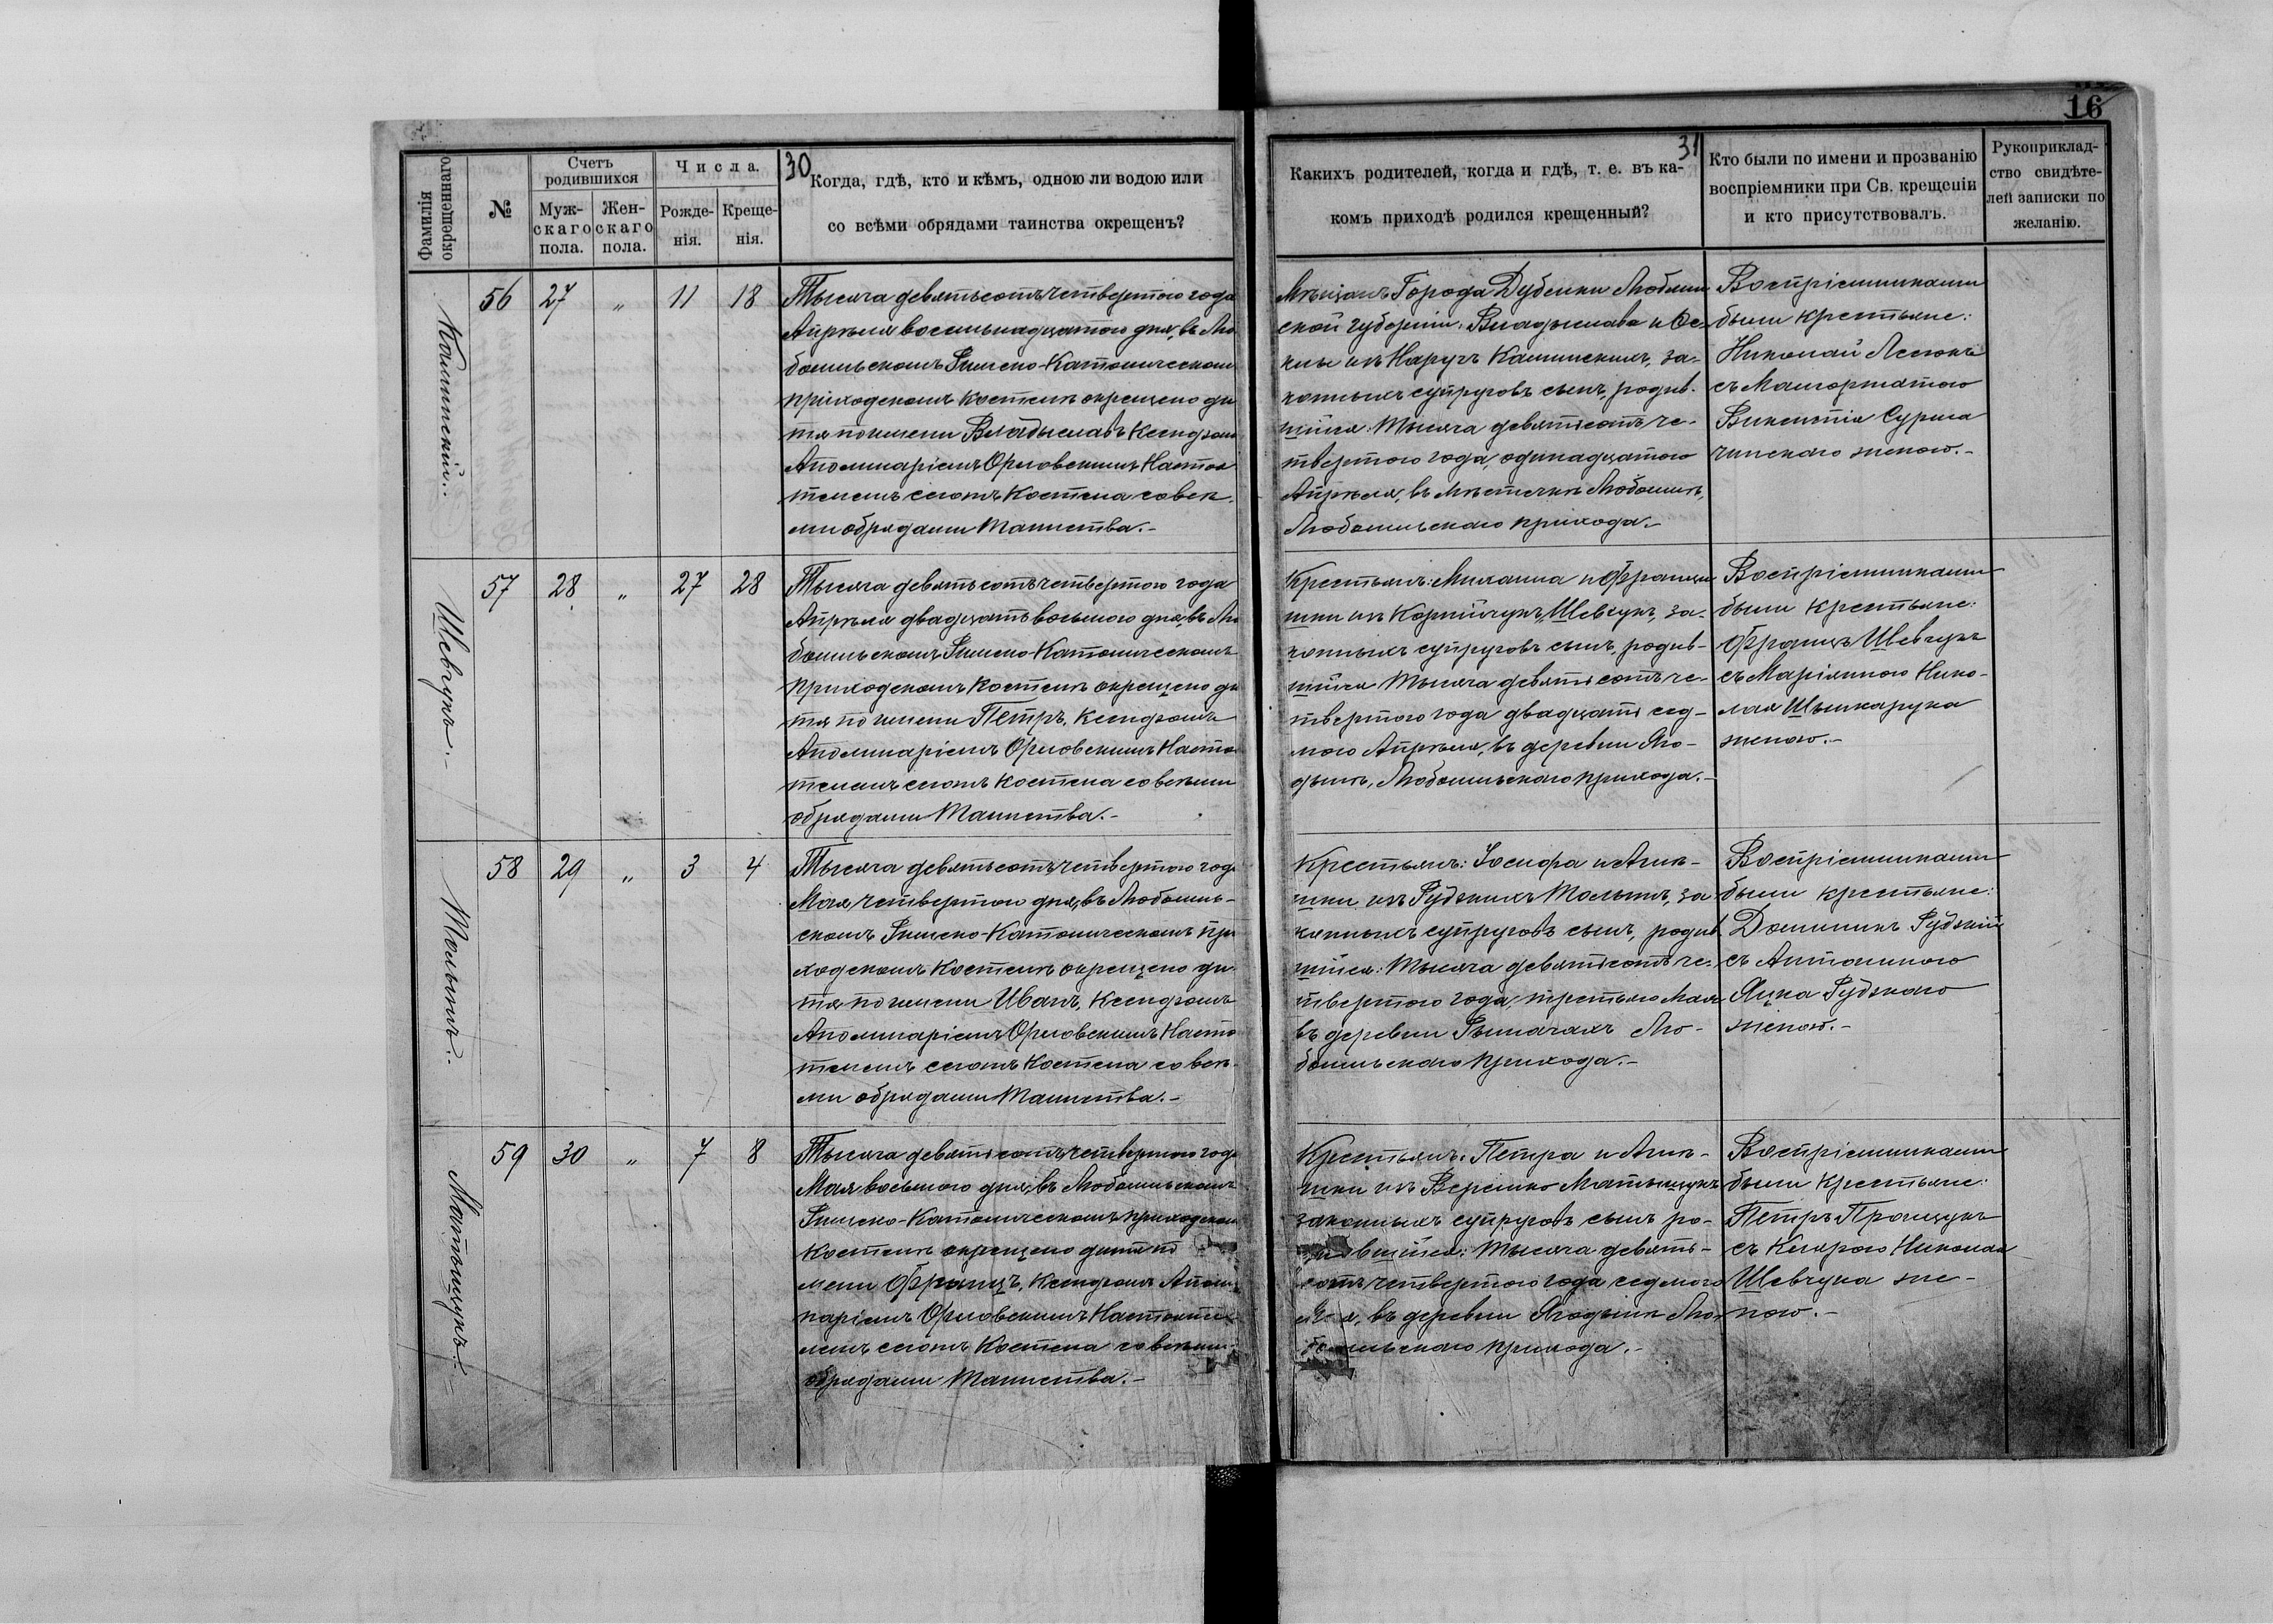 16
30
31
Фамилія
окрещеннаго
№
Счетъ
родившихся
Муж-
скаго
пола.
Жен-
скаго
пола.
Числа.
Рожде-
нія.
Креще-
нія.
Когда, гдѣ, кто и кѣмъ, одною ли водою или
со всѣми обрядами таинства окрещенъ?
Какихъ родителей, когда и гдѣ, т. е. въ ка-
комъ приходѣ родился крещенный?
Кто были по имени и прозванію
воспріемники при Св. крещеніи
и кто присутствовалъ.
Рукоприклад-
ство свидѣте-
лей записки по
желанію.
56 27 „ 11 18
Тысяча девятьсотъ четвертого года
Апрѣля восемьнадцатого дня, въ Лю
бомльскомъ Римско-Католическомъ
приходскомъ Костелѣ окрещено ди
тя по имени Владыславъ Ксендзомъ
Аполинаріемъ Орловскимъ Настоя
телемъ сегожъ Костела со всѣ-
ми обрядами Таинства.-
Мѣщанъ Города Дубенки Люблин
ской губерніи: Владыслава и
изъ Каминскихъ, за-
конныхъ супруговъ сынъ, родив-
шійся: Тысяча девятьсотъ че-
твертого года, одинадцатого
Апрѣля, въ мѣстечкѣ Любомлѣ,
Любомльскаго прихода.-
Воспріемниками
были крестьяне:
Николай
съ Малгоржатою
Викентія
женою.-
57 28 „ 27 28
Шевчукъ.-
Тысяча девятьсотъ четвертого года
Апрѣля двадцать восьмого дня, въ Лю
бомльскомъ Римско-Католическомъ
приходскомъ Костелѣ окрещено ди
тя по имени Петръ, Ксендзомъ
Аполинаріемъ Орловскимъ Настоя
телемъ сегожъ Костела со всѣми
обрядами Таинства.-
Крестьянъ: Михаила и Францы
шки изъ Корнійчукъ, Шевчукъ, за-
конныхъ супруговъ сынъ, родив-
шійся Тысяча девятьсотъ че-
твертого года двадцать сед-
мого Апрѣля, въ деревни Яго-
дынѣ, Любомльскаго прихода.-
Воспріемниками
были крестьяне:
Францъ Шевчукъ
съ Маріянною Нико-
лая
женою.-
58 29 „ 3 4
Тысяча девятьсотъ четвертого года
Мая четвертого дня, въ Любомль-
скомъ Римско-Католическомъ при
ходскомъ Костелѣ окрещено ди
тя по имени Иванъ, Ксендзомъ
Аполинаріемъ Орловскимъ Настоя
телемъ сегожъ Костела со всѣ-
ми обрядами Таинства.-
Крестьянъ: Іосифа и Агнѣ-
шки изъ Рудзкихъ за
конныхъ супруговъ сынъ, родив
шійся: Тысяча девятьсотъ че-
твертого года, третьяго Мая
въ деревни Рымачахъ Лю-
бомльскаго прихода.-
Воспріемниками
были крестьяне:
Доминикъ Рудзкій
съ Антониною
Яцка Рудзкаго
женою.-
59 30 „ 7 8
Матыщукъ.-
Тысяча девятьсотъ четвертого года
Мая восьмого дня, въ Любомльскомъ
Римско-Католическомъ приходском
Костелѣ окрещено дитя по
мени Францъ, Ксендзомъ Аполи
наріемъ Орловскимъ Настояте
лемъ сегожъ Костела со всѣми
обрядами Таинства.-
Крестьянъ: Петра и Агнѣ-
шки изъ Верешко Матыщукъ
законныхъ супруговъ сынъ ро-
дившійся: Тысяча девять-
сотъ четвертого года седмого
Мая, въ деревни Ягодынѣ Лю-
бомльскаго прихода.-
Воспріемниками
были крестьяне:
Петръ
съ Клярою Николая
Шевчука же-
ною.-